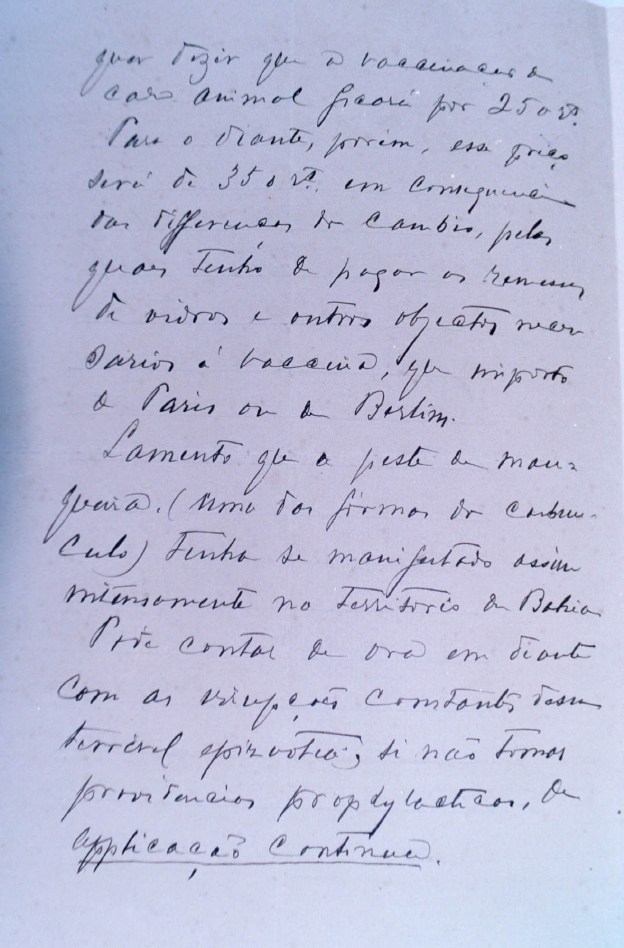 quer dizer que a vaccinação de
cada animal ficará por 250 rs.
Para o diante, porém, esse preço
será de 350 rs. em consequencia
das differenças do cambio, pelas
quaes tenho de pagar as remessas
de vidros e outros objectos neces
sarios á vaccina, que importo
de Paris ou de Berlim.
Lamento que a peste da man-
gueira. (uma das formas do carbun-
culo) tenha se manifestado assim
intensamente no territorio da Bahia
Póde contar de ora em diante
com as irrupções constantes dessa
terrivel epizootia, si não tomar
providencias prophylacticas, de
applicação continua.